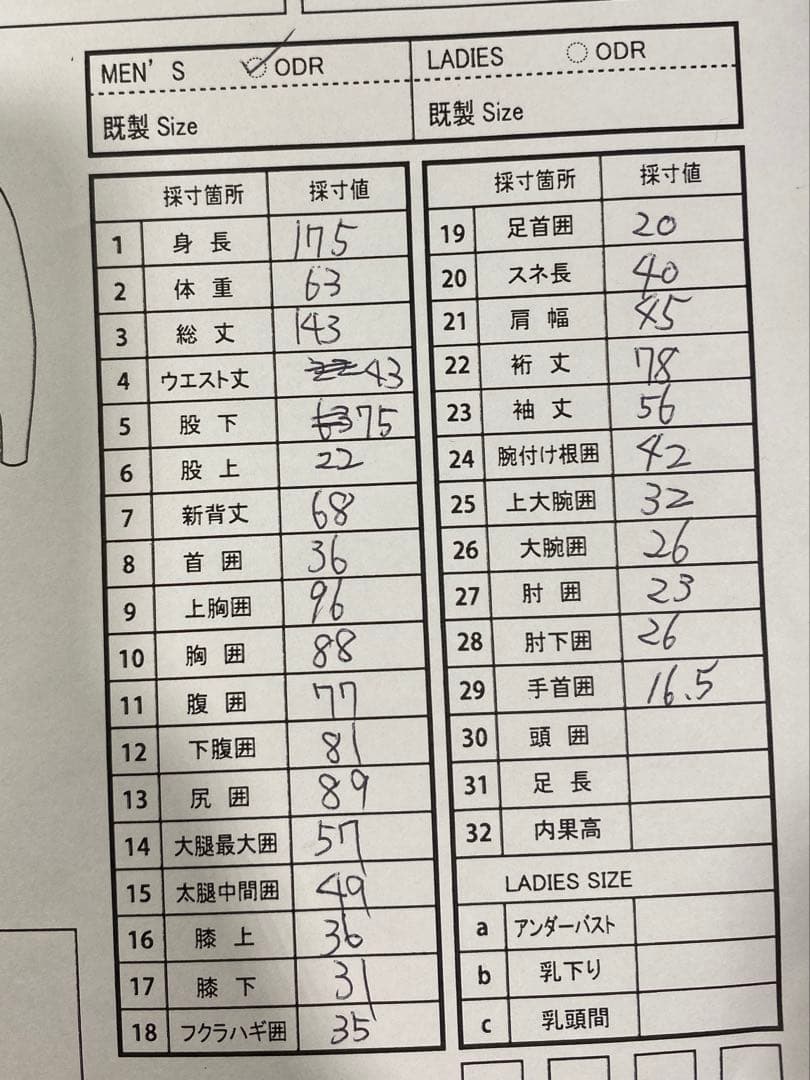 MEN'S ODR
既製 Size
LADIES ODR
既製 Size
採寸箇所 採寸値
1 身長 175
2 体重 63
3 総丈 143
4 ウエスト丈 43
5 股下 75
6 股上 22
7 新背丈 68
8 首囲 36
9 上胸囲 96
10 胸囲 88
11 腹囲 77
12 下腹囲 81
13 尻囲 89
14 大腿最大囲 57
15 太腿中間囲 49
16 膝上 36
17 膝下 31
18 フクラハギ囲 35
採寸箇所 採寸値
19 足首囲 20
20 スネ長 40
21 肩幅 45
22 裄丈 78
23 袖丈 56
24 腕付け根囲 42
25 上大腕囲 32
26 大腕囲 26
27 肘囲 23
28 肘下囲 26
29 手首囲 16.5
30 頭囲
31 足長
32 内果高
LADIES SIZE
a アンダーバスト
b 乳下り
c 乳頭間